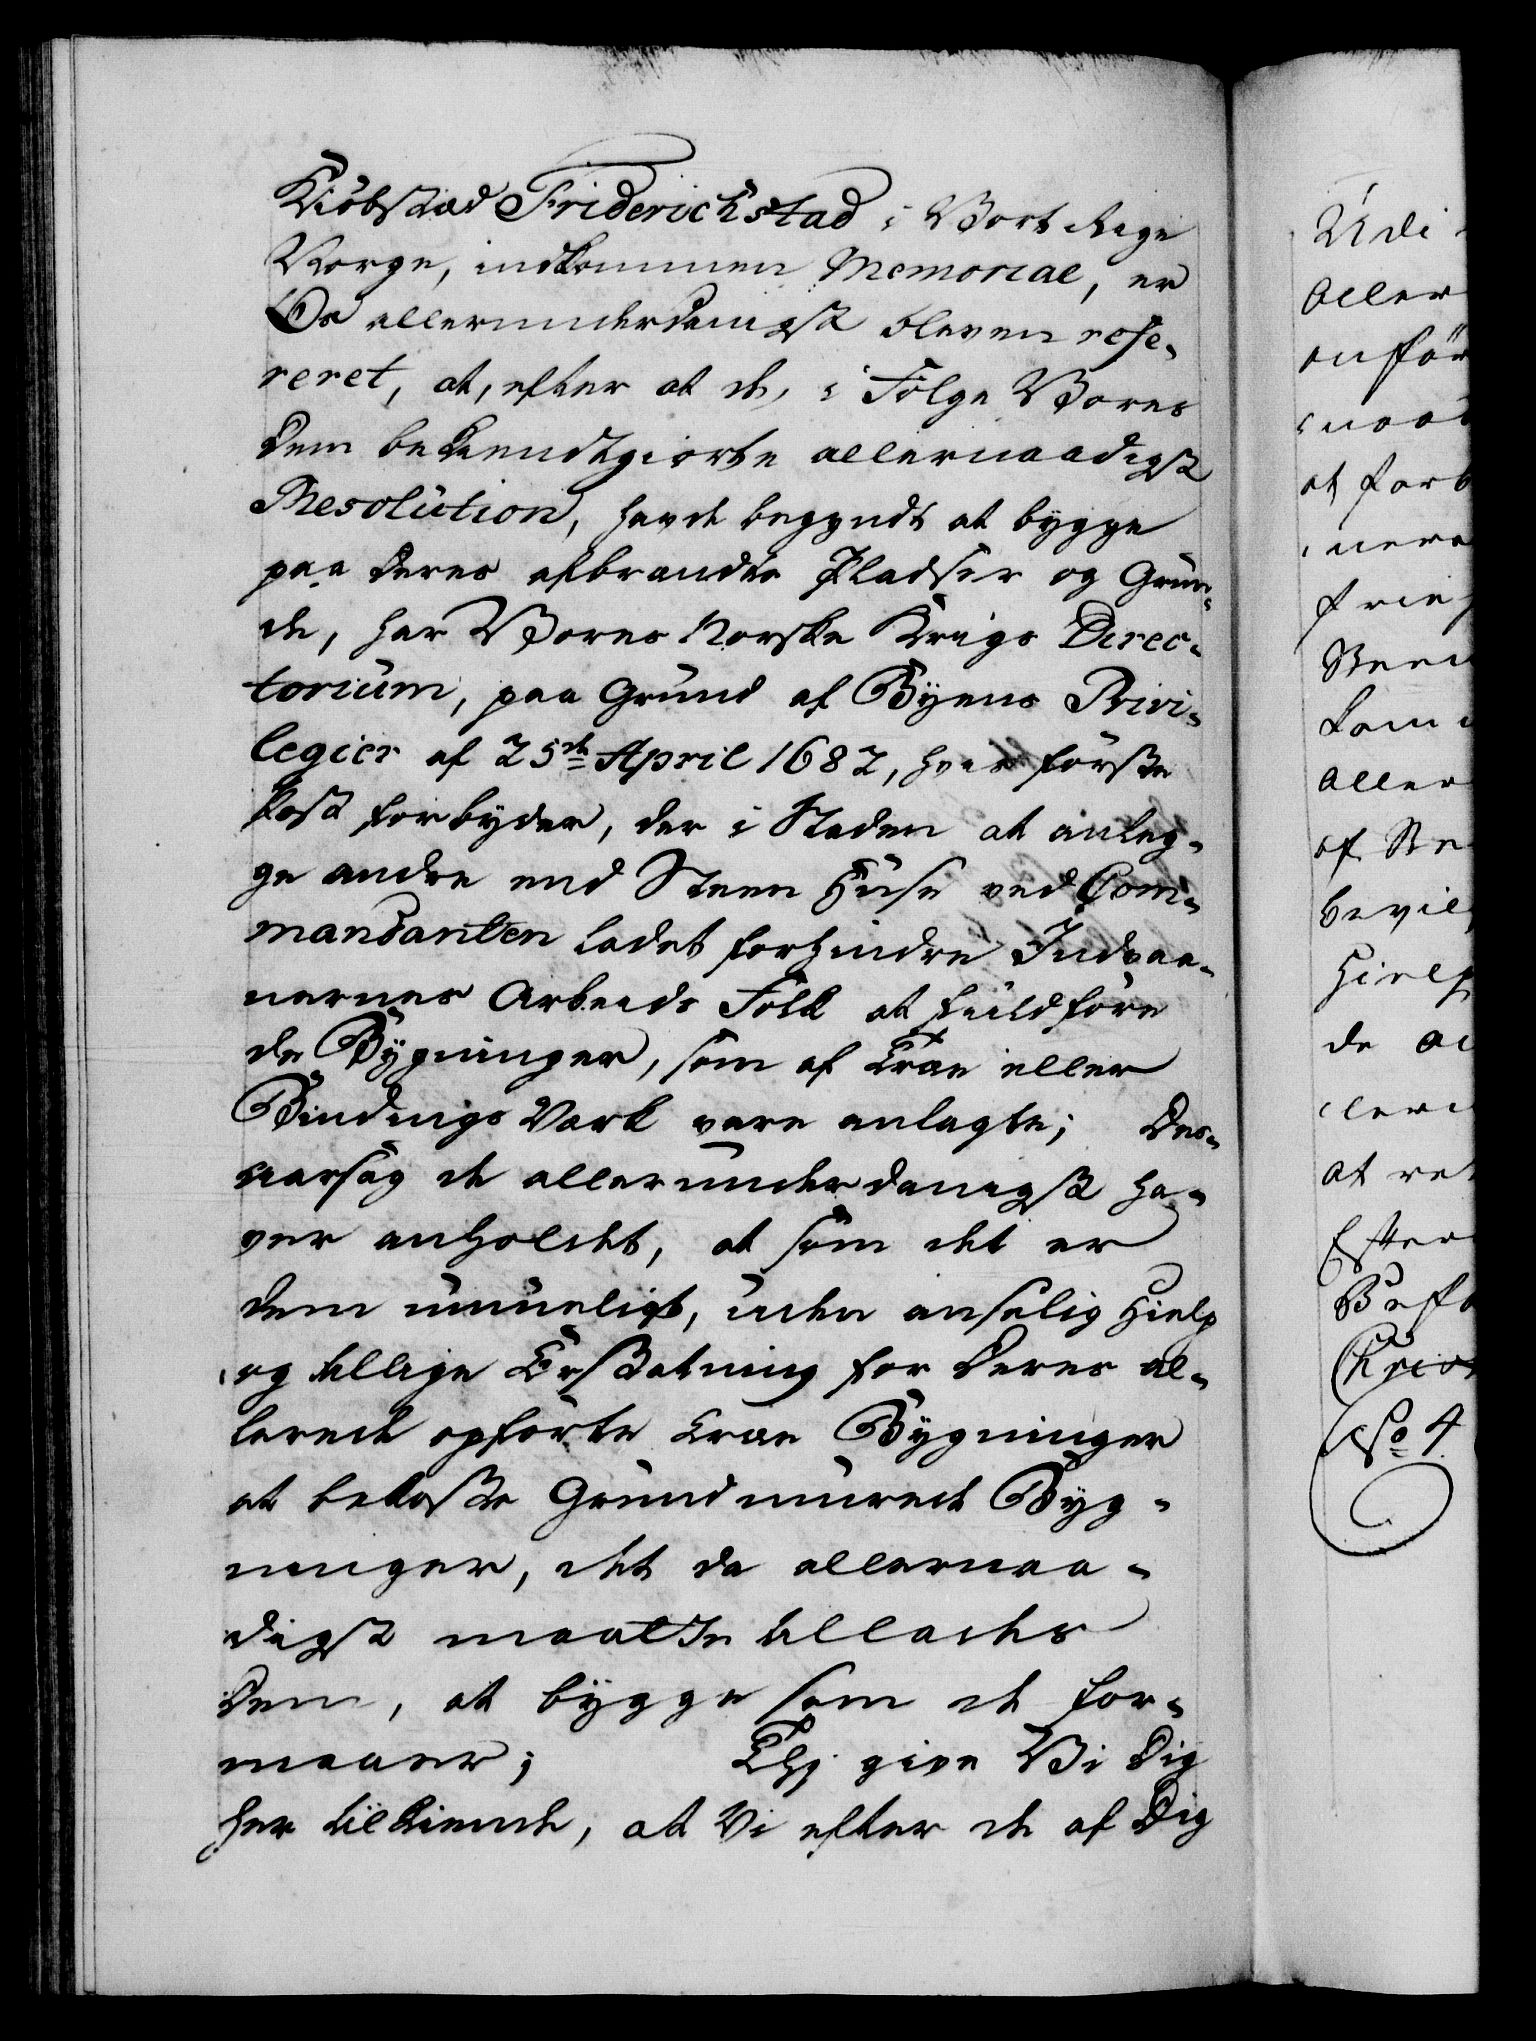 Kiöbstæd Friderichstad i Vort Rige
Norge, indkommen Memorial, er
Os allerunderdanigst bleven refe-
reret, at, efter at de, i Følge Vores
dem bekiendtgiorte allernaadigst
Resolution, havde begyndt at bygge
paa deres afbrændte Pladser og Grun-
de, har Vores Norske Krigs Direc-
torium, paa Grund af Byens Privi-
legier af 25de April 1682, hvis förste
Post forbyder, der i Staden at anleg-
ge andre end Steen Huse ved Com-
mandanten ladet forhindre Indvaa-
nernes Arbeids Folk at fuldföre
de Bygninger, som af Træe eller
Bindings Verk vare anlagte; Des-
aarsag de allerunderdanigst ha-
ver anholdet, at som det er
dem umueligt, uden anselig Hielp
og tillige Erstatning for deres al-
lerede opförte Træe Bygninger
at bekoste Grundmurede Byg-
ninger, det da allernaa-
digst maatte tillades
dem, at bygge som de for-
maaer; Thj give Vi Dig
her tilkiende, at Vi efter de af Dig
Udi
aller
anför
at forb
aller
af
bevil
Hielp
de
at
Efter
Befa
No 4